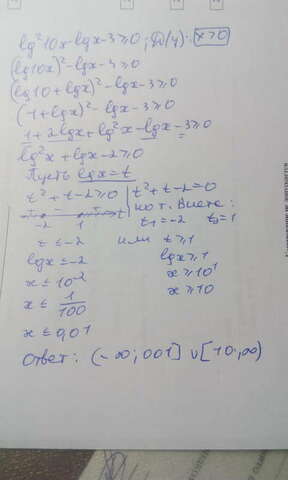 lg²10x-lgx-3≥0; D(y): x>0
(lg10x)²-lgx-3≥0
(lg10+lgx)²-lgx-3≥0
(1+lgx)²-lgx-3≥0
1+2lgx+lg²x-lgx-3≥0
lg²x+lgx-2≥0
Пусть lgx=t
t²+t-2≥0 | t²+t-2=0
-2 1 t по т. Виета:
t₁=-2 t₂=1
t≤-2 или t≥1
lgx≤-2 lgx≥1
x≤10⁻² x≥10¹
x≤1/100 x≥10
x≤0,01
Ответ: (-∞;001]∪[10;∞)